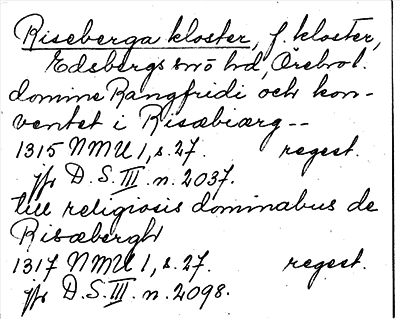 Riseberga kloster, f. kloster,
Edsbergs sn o hd, Örebro l.
domine Rangfridi och kon-
ventet i Risæbiærg--
1315 NMU 1, s. 27. regest.
jfr D.S. III. n. 2037.
till religiosis dominabus de
Risæbergh
1317 NMU 1, s. 27. regest.
jfr D.S. III. n. 2098.